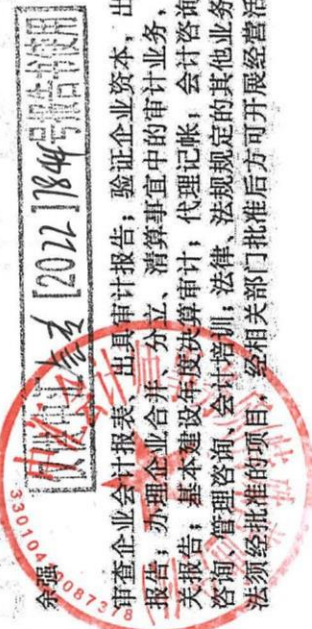 余强
[2022]7844号报告书使用
审查企业会计报表、出具审计报告；验证企业资本，出
报告；办理企业合并、分立、清算事宜中的审计业务，
关报告；基本建设年度决算审计；代理记帐；会计咨询
咨询、管理咨询、会计培训；法律、法规规定的其他业务
法须经批准的项目，经相关部门批准后方可开展经营活